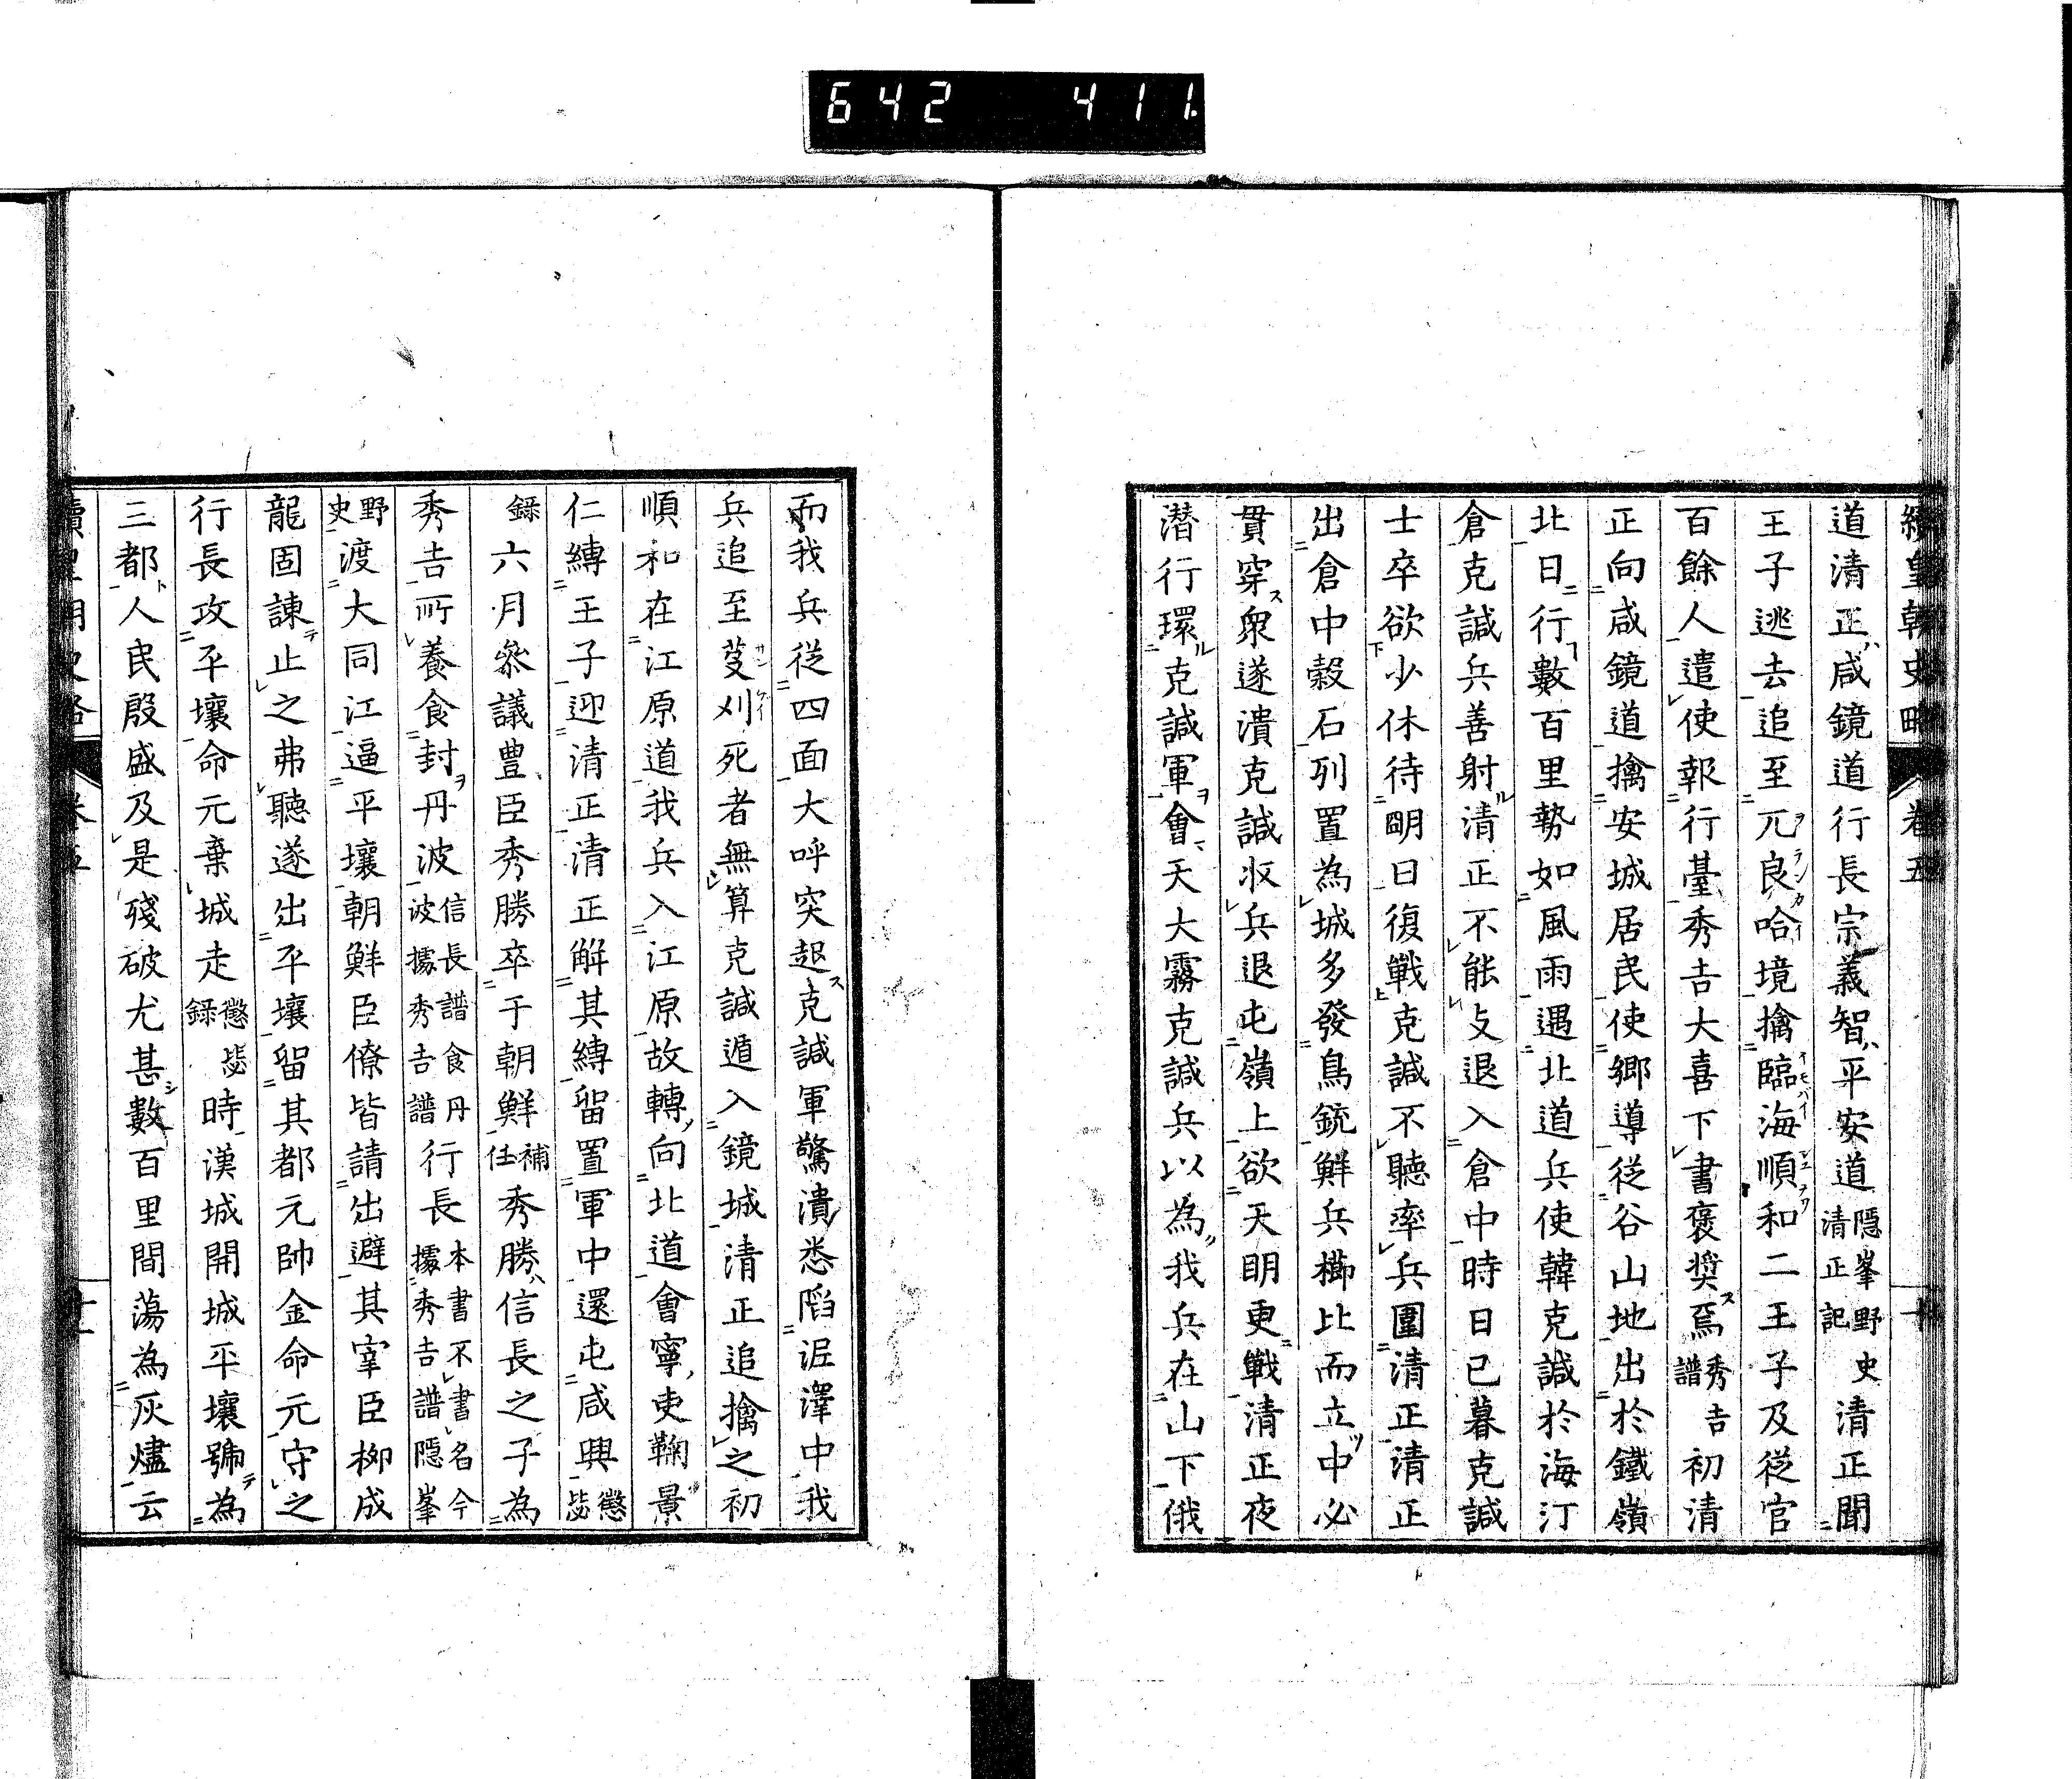 642 411
續皇朝史略 卷五 十
道清正咸鏡道行長宗義智平安道隱峯野史清正記清正聞
王子逃去追至兀良哈境擒臨海順和二王子及從官
百餘人遣使報行臺秀吉大喜下書褒奬焉秀吉譜初清
正向咸鏡道擒安城居民使鄉導從谷山地出於鐵嶺
北日行數百里勢如風雨遇北道兵使韓克諴於海汀
倉克諴兵善射清正不能支退入倉中時日已暮克諴
士卒欲少休待明日復戰克諴不聽率兵圍清正清正
出倉中穀石列置為城多發鳥銃鮮兵櫛比而立中必
貫穿衆遂潰克諴收兵退屯嶺上欲天明更戰清正夜
潛行環克諴軍會天大霧克諴兵以為我兵在山下俄
而我兵從四面大呼突起克諴軍驚潰悉陷泥澤中我
兵追至芟刈死者無算克諴遁入鏡城清正追擒之初
順和在江原道我兵入江原故轉向北道會寧吏鞠景
仁縛王子迎清正清正解其縛留置軍中還屯咸興懲毖
錄六月參議豊臣秀勝卒于朝鮮補任秀勝信長之子為
秀吉所養食封丹波信長譜食丹波據秀吉譜行長本書不書名今據秀吉譜隱峯
野史渡大同江逼平壤朝鮮臣僚皆請出避其宰臣柳成
龍固諫止之弗聽遂出平壤留其都元帥金命元守之
行長攻平壤命元棄城走懲毖錄時漢城開城平壤號為
三都人民殷盛及是殘破尤甚數百里間蕩為灰燼云